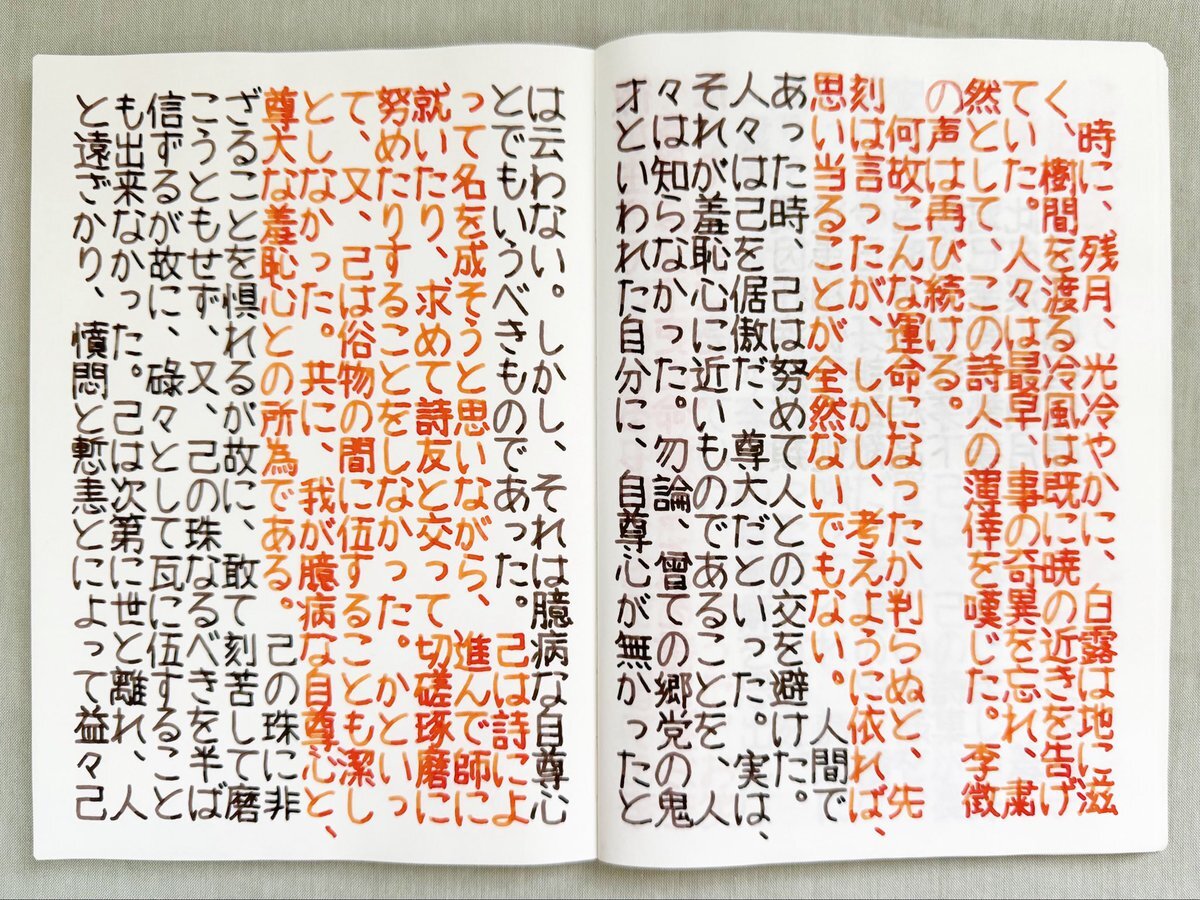 時に、残月、光冷やかに、白露は地に滋
く、樹間を渡る冷風は既に暁の近きを告げ
ていた。人々は最早、事の奇異を忘れ、粛
然として、この詩人の薄倖を嘆じた。李徴
の声は再び続ける。
何故こんな運命になったか判らぬと、先
刻は言ったが、しかし、考えように依れば、
思い当ることが全然ないでもない。人間で
あった時、己は努めて人との交を避けた。
人々は己を倨傲だ、尊大だといった。実は、
それが羞恥心に近いものであることを、人
々は知らなかった。勿論、曾ての郷党の鬼
才といわれた自分に、自尊心が無かったと
は云わない。しかし、それは臆病な自尊心
とでもいうべきものであった。己は詩によ
って名を成そうと思いながら、進んで師に
就いたり、求めて詩友と交って切磋琢磨に
努めたりすることをしなかった。かといっ
て、又、己は俗物の間に伍することも潔し
としなかった。共に、我が臆病な自尊心と、
尊大な羞恥心との所為である。己の珠に非
ざることを惧れるが故に、敢て刻苦して磨
こうともせず、又、己の珠なるべきを半ば
信ずるが故に、碌々として瓦に伍すること
も出来なかった。己は次第に世と離れ、人
と遠ざかり、憤悶と慙恚とによって益々己